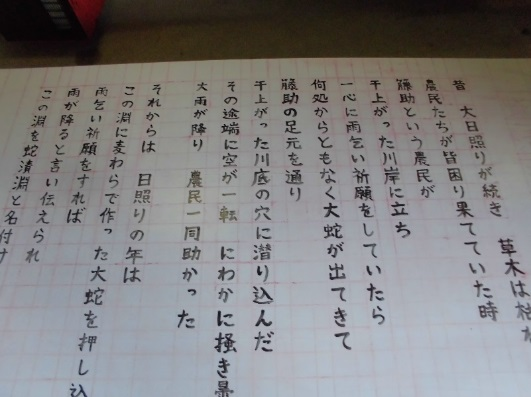 昔 大日照りが続き 草木は枯
農民たちが皆困り果てていた時
藤助という農民が
干上がった川岸に立ち
一心に雨乞い祈願をしていたら
何処からともなく大蛇が出てきて
藤助の足元を通り
干上がった川底の穴に潜り込んだ
その途端に空が一転 にわかに掻き
大雨が降り 農民一同助かった
それからは 日照りの年は
この淵に麦わらで作った大蛇を押し込
雨乞い祈願をすれば
雨が降ると言い伝えられ
この淵を蛇漬淵と名付け